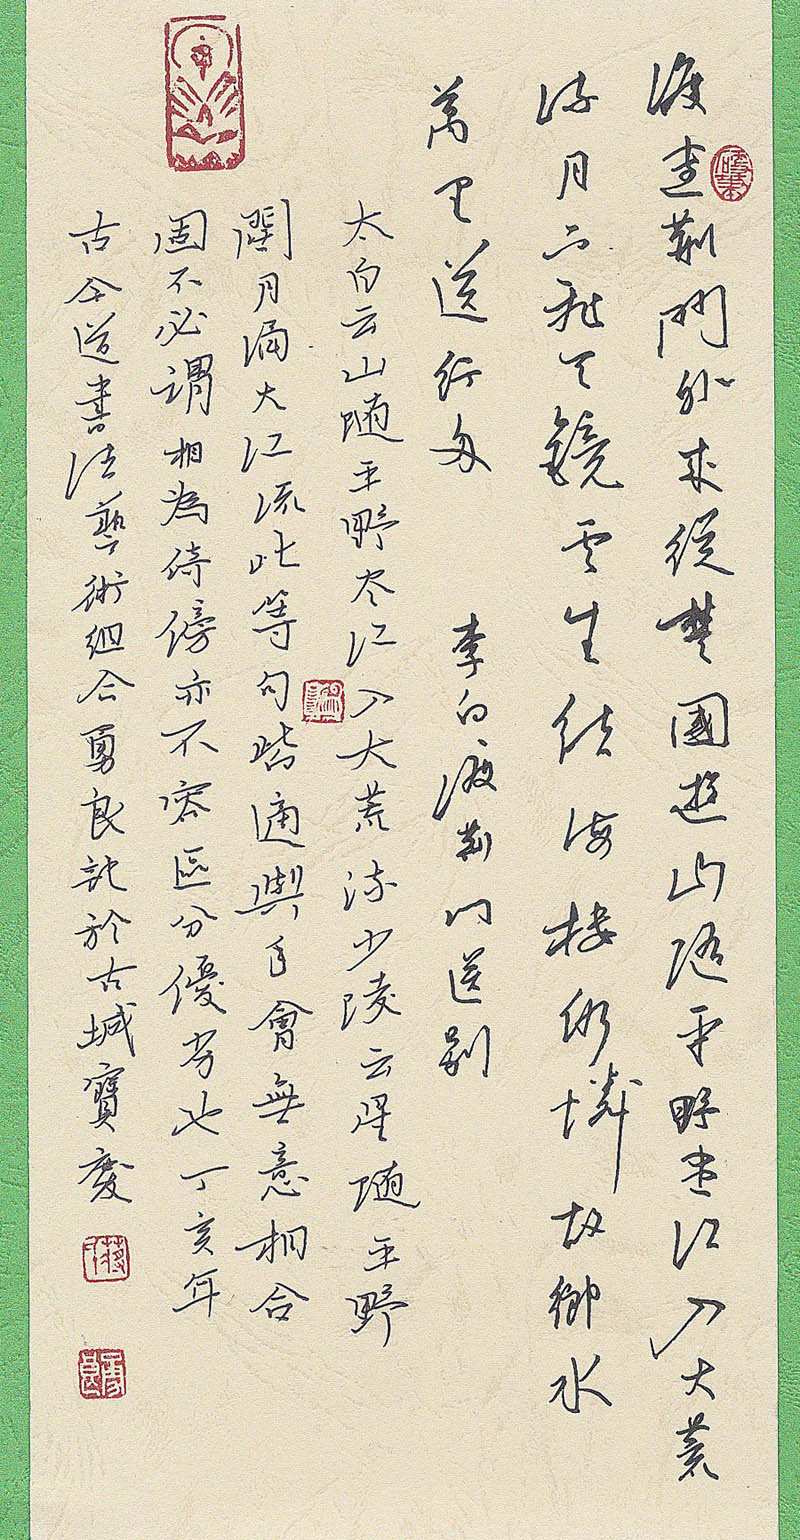 渡遠荊門外来從楚國遊山随平野盡江入大荒
流月下飛天鏡雲生結海楼仍憐故鄉水
萬里送行舟 李白渡荊門送别
太白云山随平野尽江入大荒流少陵云星随平野
闊月涌大江流此等句皆適與手會無意相合
固不必謂相為倚傍亦不容區分優劣也丁亥年
古今道書法藝術合勇良記於古城寶慶